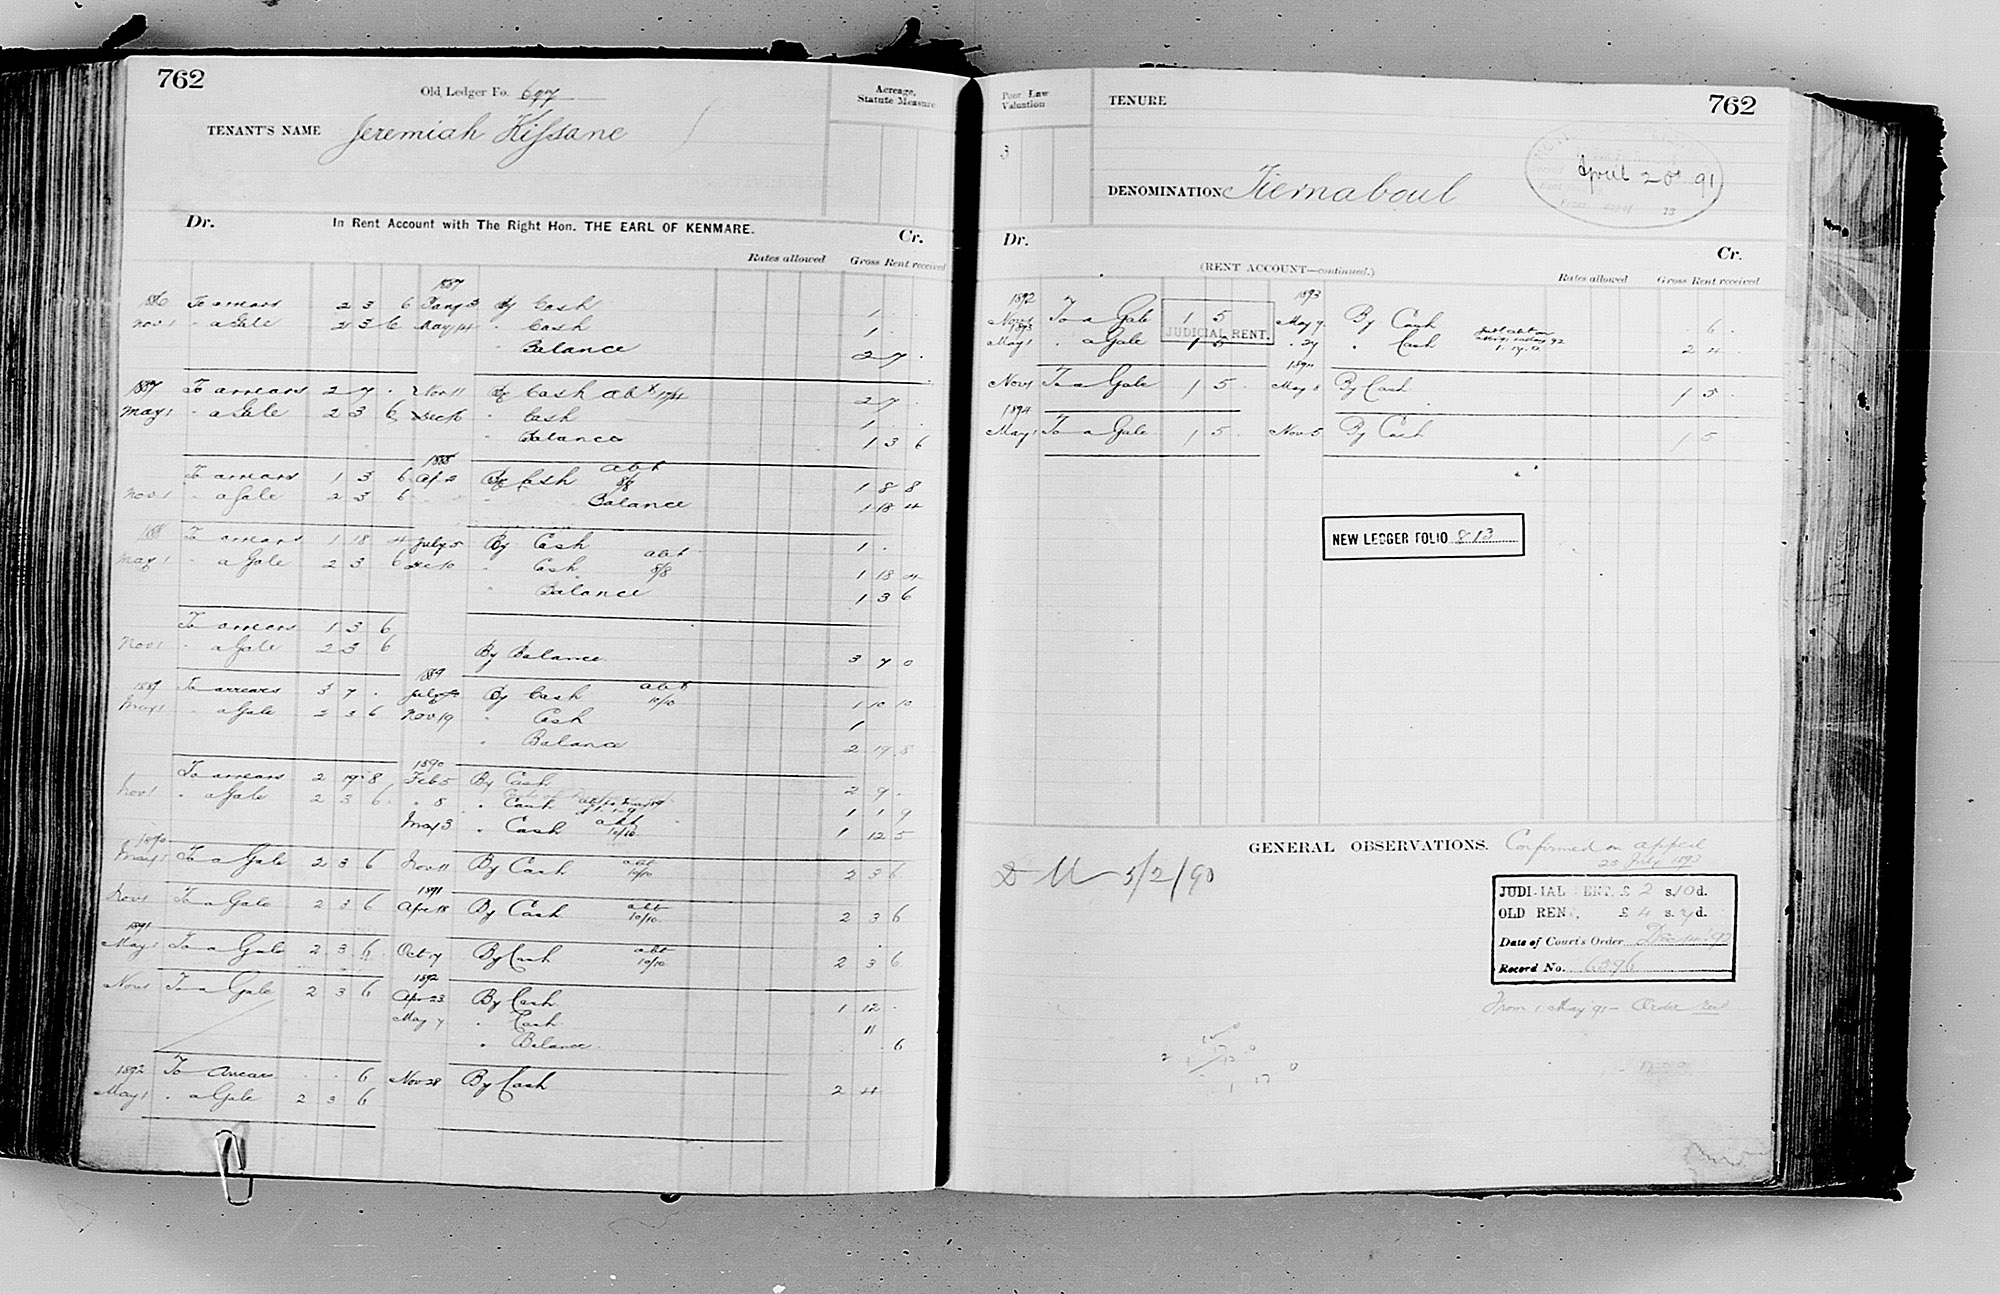 762
Old Ledger Fo. 697
Acreage, Statute Measure
TENANT'S NAME Jeremiah Kissane
Dr. In Rent Account with The Right Hon. THE EARL OF KENMARE. Cr.
Rates allowed Gross Rent received
1887
1886 To arrears 2 3 6 Jany 3 By Cash 1 . .
Nov 1 " a Gale 2 3 6 May 14 " Cash 1 . .
" Balance 2 7 .
1887 To arrears 2 7 . Nov 11 By Cash abt 2 7 .
May 1 " a Gale 2 3 6 Dec 16 " Cash 1 . .
" Balance 1 3 6
1888 abt
To arrears 1 3 6 Ap 2 By Cash 8/8 1 8 8
Nov 1 " a Gale 2 3 6 " Balance 1 18 4
1888 To arrears 1 18 4 July 5 By Cash 1 . .
May 1 " a Gale 2 3 6 Dec 10 " Cash abt 8/8 1 18 4
" Balance 1 3 6
To arrears 1 3 6
Nov 1 " a Gale 2 3 6 By Balance 3 7 0
1889
1889 To arrears 3 7 . July By Cash abt 10/10 1 10 10
May 1 " a Gale 2 3 6 Nov 19 " Cash 1
" Balance 2 19 8
1890
To arrears 2 19 8 Feb 5 By Cash 2 9 .
Nov 1 " a Gale 2 3 6 " 8 " Cash 1 1 9
May 3 " Cash abt 10/10 1 12 5
1890
May 1 To a Gale 2 3 6 Nov 11 By Cash abt 10/10 2 3 6
1891
Nov 1 To a Gale 2 3 6 Apr 18 By Cash abt 10/10 2 3 6
1891
May 1 To a Gale 2 3 6 Oct 17 By Cash abt 10/10 2 3 6
1892
Nov 1 To a Gale 2 3 6 Apr 23 By Cash 1 12 .
May 7 " Cash 11
" Balance . . 6
1892 To Arrears . . 6 Nov 28 By Cash 2 4
May 1 " a Gale 2 3 6
Poor Law Valuation
TENURE
762
3
April 20 91
DENOMINATION Tiernaboul
Dr. (RENT ACCOUNT—continued.) Cr.
Rates allowed Gross Rent received
1892 1893
Nov 1 To a Gale 1 5 May 9 By Cash . 6 .
1893 JUDICIAL RENT.
May 1 " a Gale 1 5 " 27 " Cash 2 4 .
1894
Nov 1 To a Gale 1 5 . May 8 By Cash 1 5 .
1894
May 1 To a Gale 1 5 . Nov 5 By Cash 1 5
NEW LEDGER FOLIO 813
GENERAL OBSERVATIONS. Confirmed on appeal
25 July 1893
5/2/90
JUDICIAL RENT, £ 2 s. 10 d.
OLD RENT, £ 4 s. 7 d.
Date of Court's Order
Record No. 6396
From 1 May 91 - Order